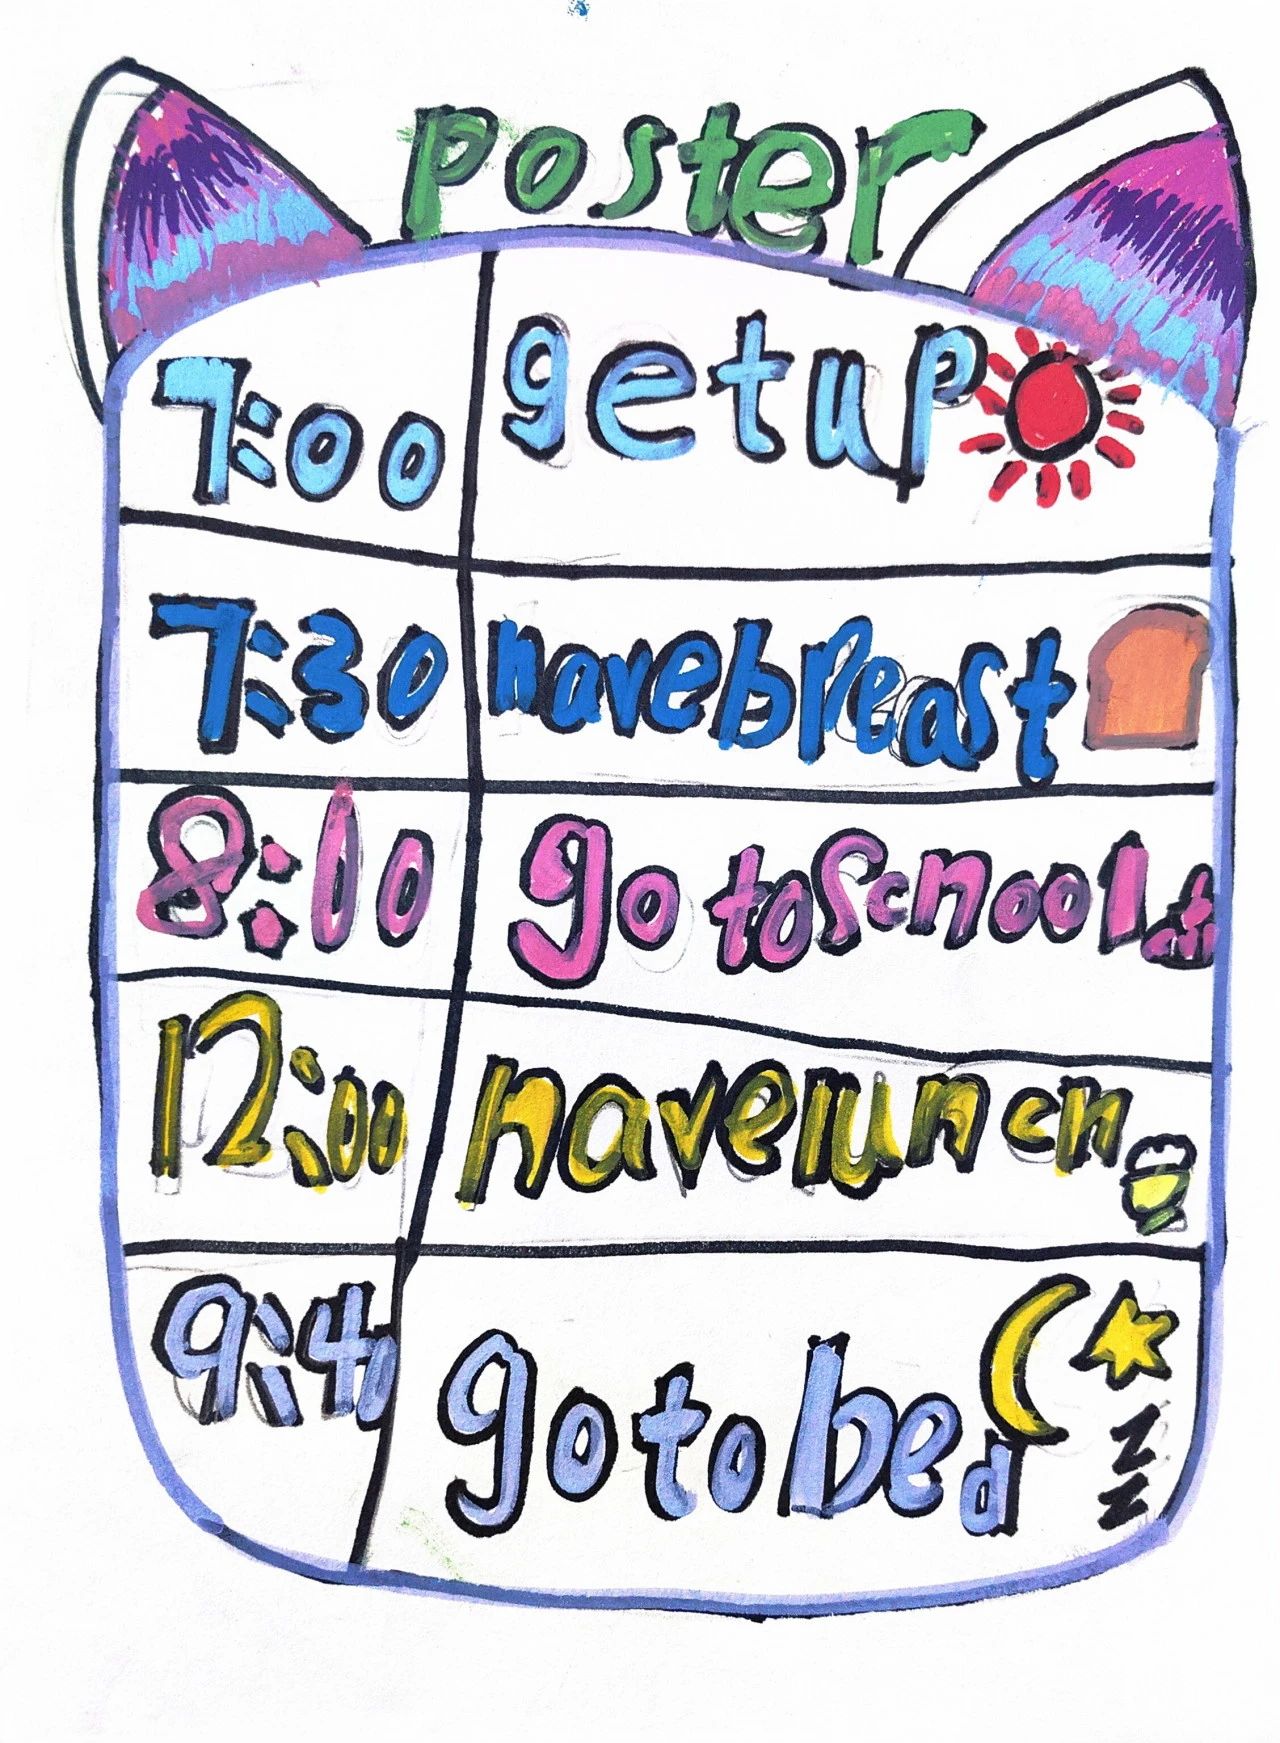 poster
7:00 get up
7:30 have breast
8:10 go to school
12:00 have lunch
9:40 go to bed
zz